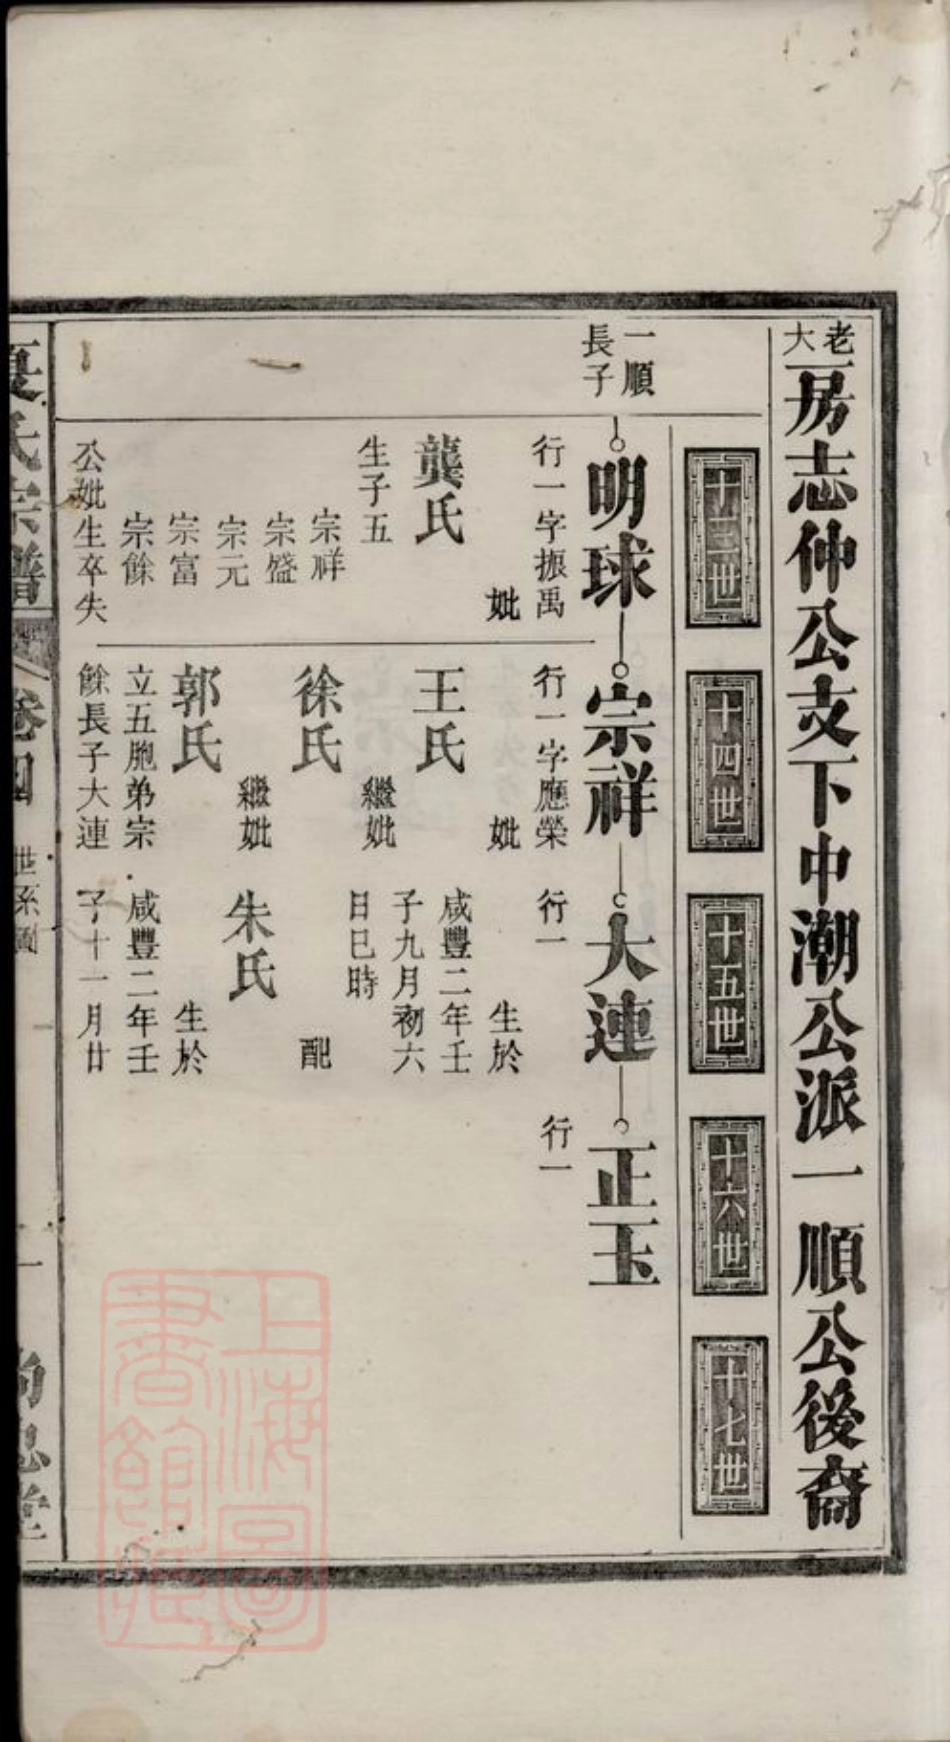 老大二房志仲公支下中潮公派一順公後裔
十三世
十四世
十五世
十六世
十七世
一順
長子
明球
行一字振禹
妣
龔氏
生子五
宗祥
宗盛
宗元
宗富
宗餘
公妣生卒失
宗祥
行一字應榮
妣
王氏
繼妣
徐氏
繼妣
郭氏
立五胞弟宗
餘長子大連
大連
行一
生於
咸豐二年壬
子九月初六
日巳時
配
朱氏
生於
咸豐二年壬
子十一月廿
正玉
行一
夏氏宗譜
卷四
世系圖
一
尚忠堂
上海圖書館藏